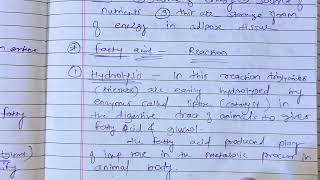 nutrients ③ this are storage form
of energy in adipose tissue
* Fatty acid - Reaction
① Hydrolysis - In this reaction
are easily hydrolysed by
enzymes called lipase (catalyst) in
the digestive tract of animals to gives
fatty acid & glycerol.
the fatty acid produced play
imp role in the metabolic process in
animal body.
fatty